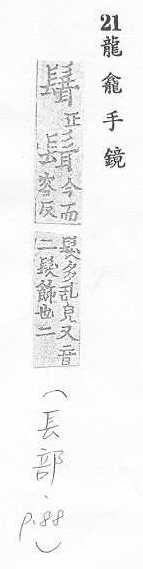 21 龍龕手鏡
正髶今而容反
髮多乱皃又音
二髮飾也二
(長部、p.88)